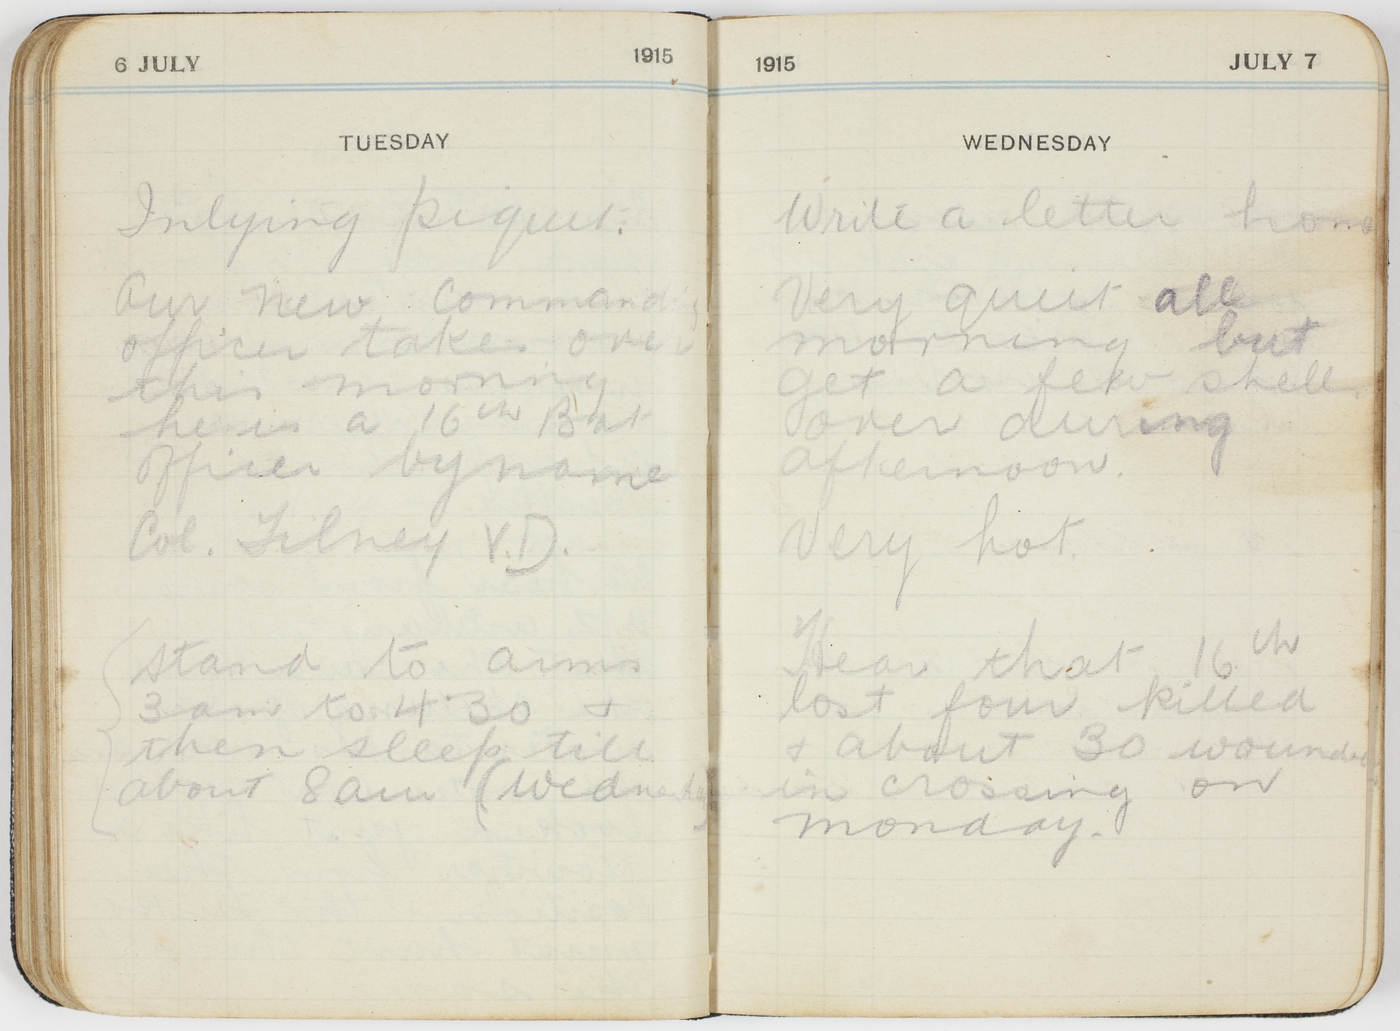 6 JULY 1915
TUESDAY
Inlying piquet.
Our new commanding
officer takes over
this morning
he is a 16th Bat
officer by name
Col. Tilney V.D.
stand to arms
3 am to 4.30 &
then sleep till
about 8 am (Wednesday)
1915 JULY 7
WEDNESDAY
Write a letter home
Very quiet all
morning but
get a few shells
over during
afternoon.
Very hot.
Hear that 16th
lost four killed
& about 30 wounded
in crossing on
monday.